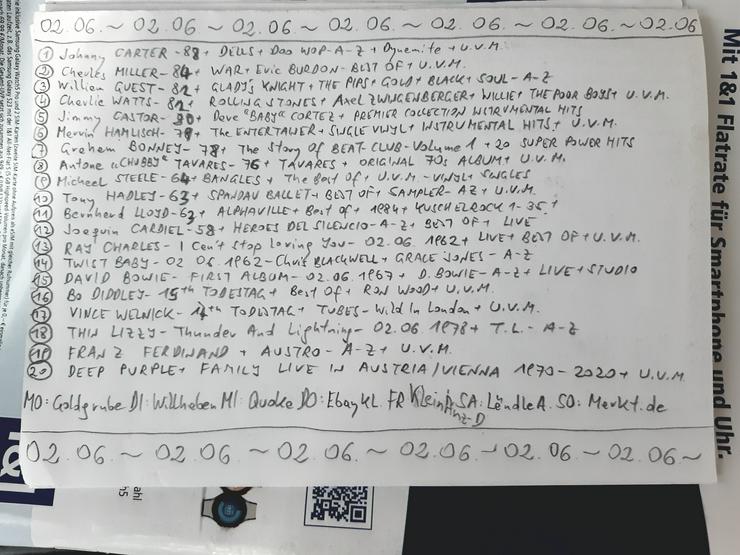 02.06. ~ 02.06 ~ 02.06 ~ 02.06 ~ 02.06 ~ 02.06 ~ 02.06
1 Johnny CARTER - 88 + DELLS + Doo WOP - A-Z + Dynemite + U.V.M.
2 Cherles MILLER - 84 + WAR + Eric BURDON - BEST OF + U.V.M.
3 Williem GUEST - 82 + GLADYS KNIGHT + THE PIPS + GOLD + BLACK + SOUL - A-Z
4 Cherlie WATTS - 82 + ROLLING STONES + Axel ZWINGENBERGER + WILLIE + THE POOR BOYS + U.V.M.
5 Jimmy CASTOR - 80 + Dave "BABY" CORTEZ + PREMIER COLLECTION INSTRUMENTAL HITS
6 Mervin HAMLISCH - 79 + The ENTERTAINER + SINGLE VINYL + INSTRUMENTAL HITS + U.V.M.
7 Grehem BONNEY - 78 + The Story OF BEAT-CLUB - Volume 1 + 20 SUPER POWER HITS
8 Antone "CHUBBY" TAVARES - 76 + TAVARES + ORIGINAL 70s ALBUM + U.V.M.
9 Micheel STEELE - 64 + BANGLES + The Best OF + U.V.M - VINYL + SINGLES
10 Tony HADLEY - 63 + SPANDAU BALLET + BEST OF + SAMPLER - AZ + U.V.M.
11 Bernherd LLOYD - 63 + ALPHAVILLE + Best of + 1984 + KUSCHELROCK 1-35 +
12 Joequin CARDIEL - 58 + HEROES DEL SILENCIO - A-Z + BEST OF + LIVE
13 RAY CHARLES - I Cen't Stop loving You - 02.06. 1962 + LIVE + BEST OF + U.V.M.
14 TWIST BABY - 02 06. 1962 - Chris BLACKWELL + GRACE JONES - A-Z
15 DAVID BOWIE - FIRST ALBUM - 02.06. 1967 + D. BOWIE - A-Z + LIVE + STUDIO
16 Bo DIDDLEY - 15th TODESTAG + Best Of + RON WOOD + U.V.M.
17 VINCE WELNICK - 17th TODESTAG + TUBES - Wild In London + U.V.M.
18 THIN LIZZY - Thunder And Lightning - 02.06. 1978 + T.L. - A-Z
19 FRANZ FERDINAND + AUSTRO - A-Z + U.V.M.
20 DEEP PURPLE + FAMILY LIVE IN AUSTRIA/VIENNA 1970-2020 + U.V.M
MO: Goldgrube DI: Willheben MI: Quoke DO: EbayKL. FR KleinAnz-D SA: LändleA. SO: Merkt.de
02.06. ~ 02.06. ~ 02.06. ~ 02.06. ~ 02.06 ~ 02.06. ~
Mit 1&1 Flatrate für Smartphone und Uhr.